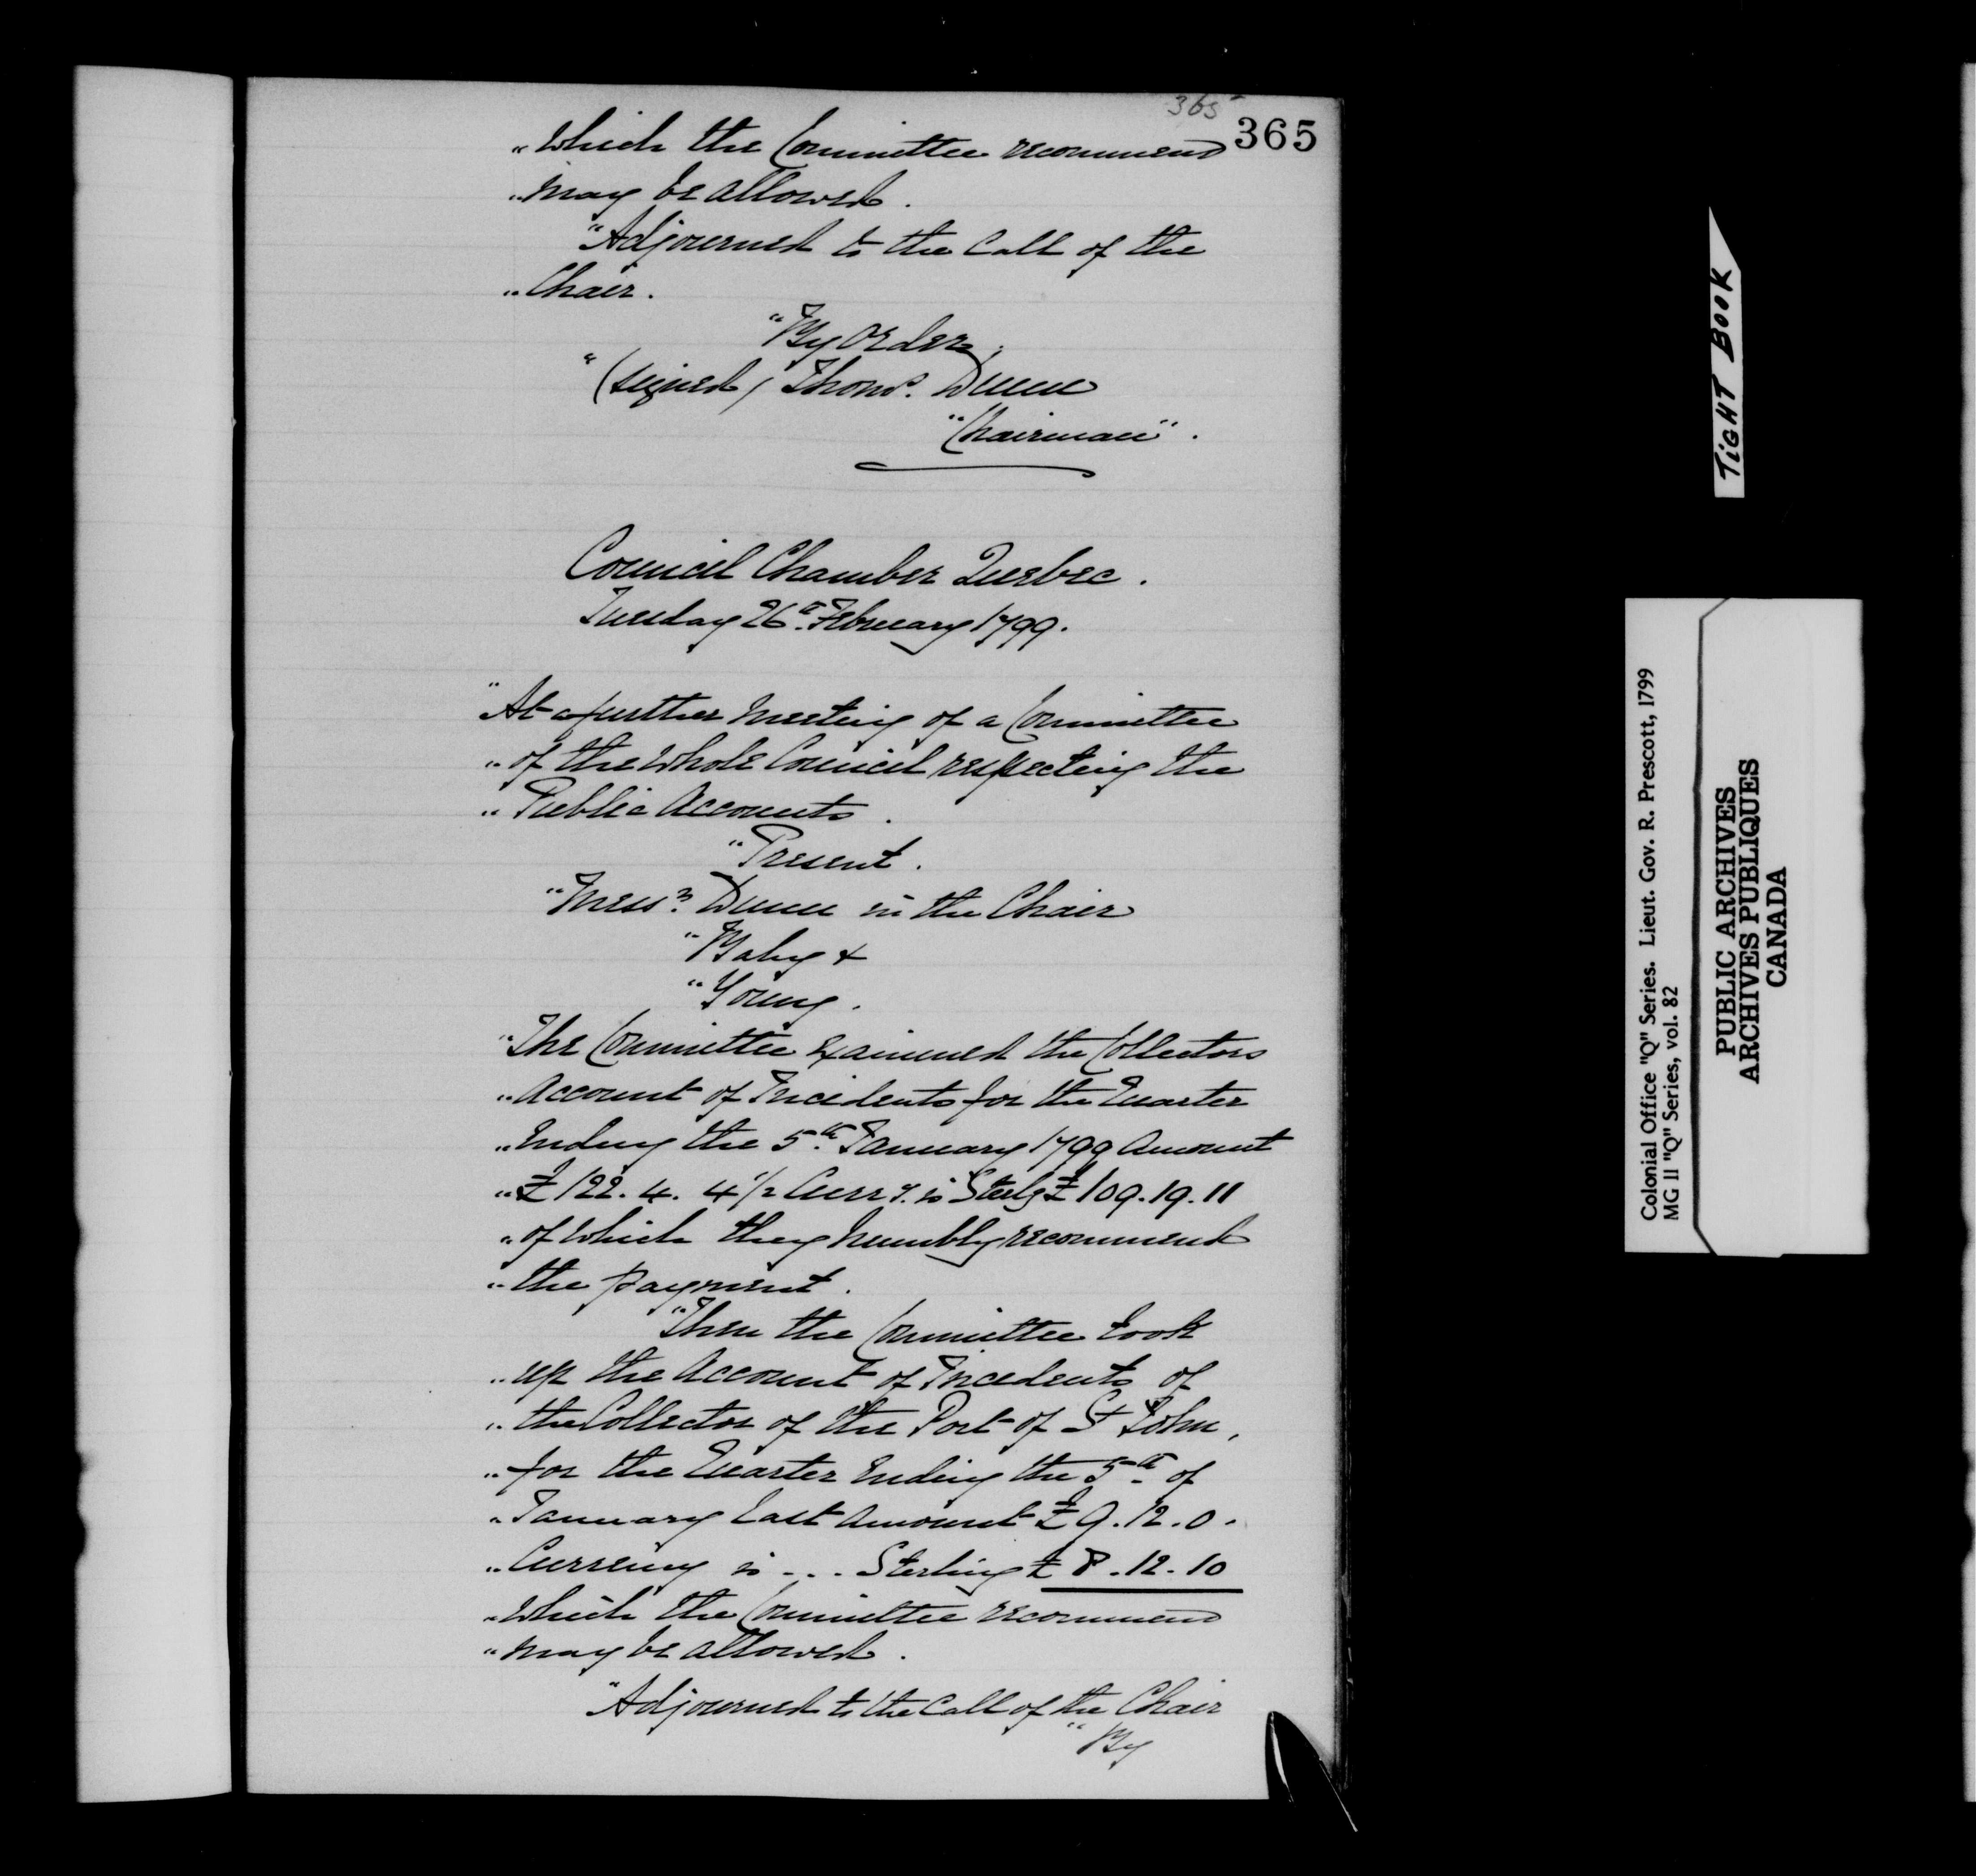 365
365
"which the Committee recommend
"may be allowed.
"Adjourned to the Call of the
"Chair.
"By Order,
"(signed) Thoms. Dunn
"Chairman".
Council Chamber Quebec.
Tuesday 26th February 1799.
"At a further meeting of a Committee
"of the whole Council respecting the
"Public Accounts.
"Present.
"Messrs. Dunn in the Chair
"Baby &
"Young.
"The Committee examined the Collectors
"Account of Incidents for the Quarter
"Ending the 5th January 1799 Amount
"£122.4.4 1/2 Curry. is Sterlg £109.19.11
"of which they humbly recommend
"the payment.
"Then the Committee took
"up the Account of Incedents of
"the Collector of the Port of St John,
"for the Quarter Ending the 5th of
"January last Amount £9.12.0.
"Currency is - - - Sterling £8.12.10
"which the Committee recommend
"may be allowed.
"Adjourned to the Call of the Chair
"By
TIGHT BOOK
Colonial Office "Q" Series. Lieut. Gov. R. Prescott, 1799
MG 11 "Q" Series, vol. 82
PUBLIC ARCHIVES
ARCHIVES PUBLIQUES
CANADA